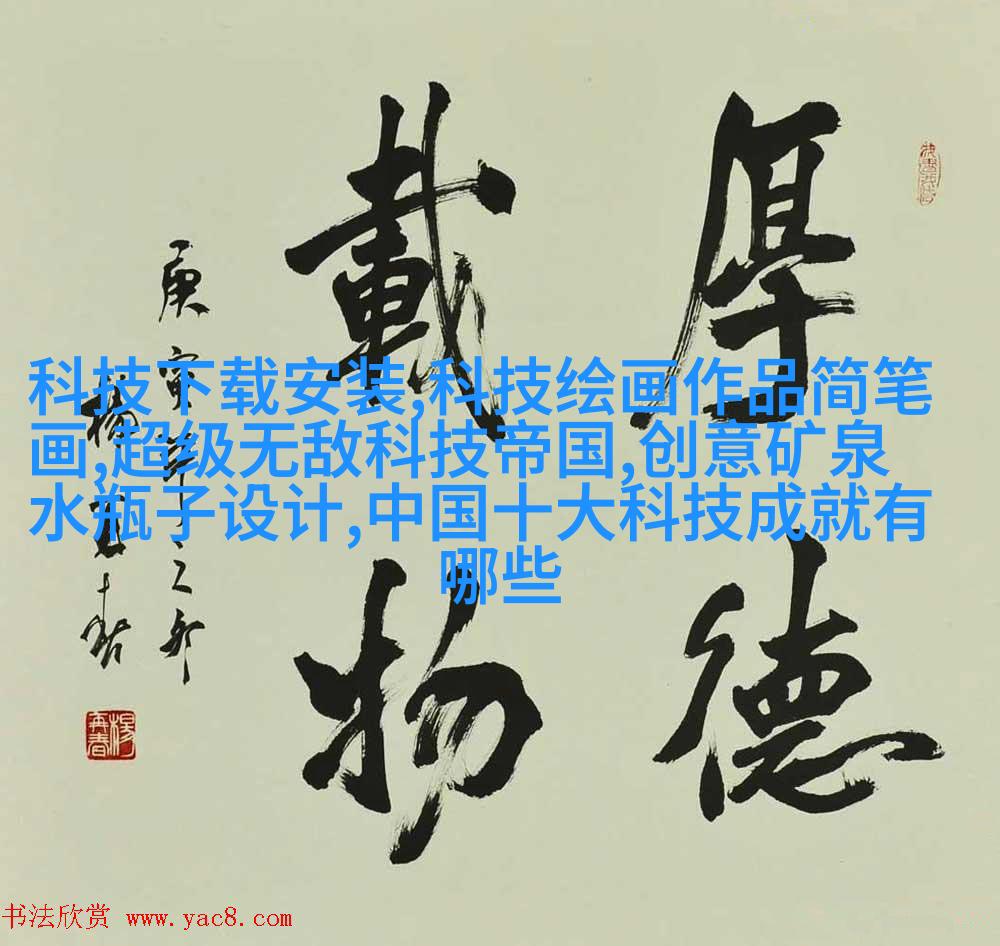 厚德
載物
庚寅年之卯
楊再春
楊再春
科技下载安装,科技绘画作品简笔
画,超级无敌科技帝国,创意矿泉
水瓶子设计,中国十大科技成就有
哪些
书法欣赏 www.yac8.com